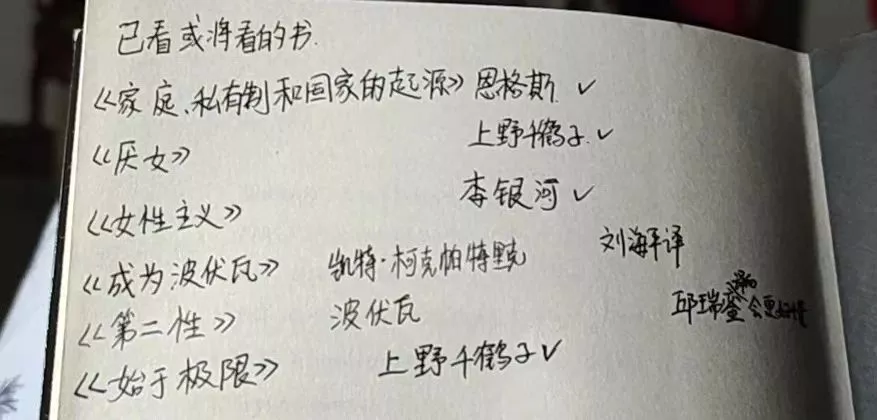 已看或将看的书.
《家庭、私有制和国家的起源》恩格斯 ✓
《厌女》 上野千鹤子 ✓
《女性主义》 李银河 ✓
《成为波伏瓦》 凯特·柯克帕特里克 刘海平译
《第二性》 波伏瓦 邱瑞銮 会更
《始于极限》 上野千鹤子 ✓